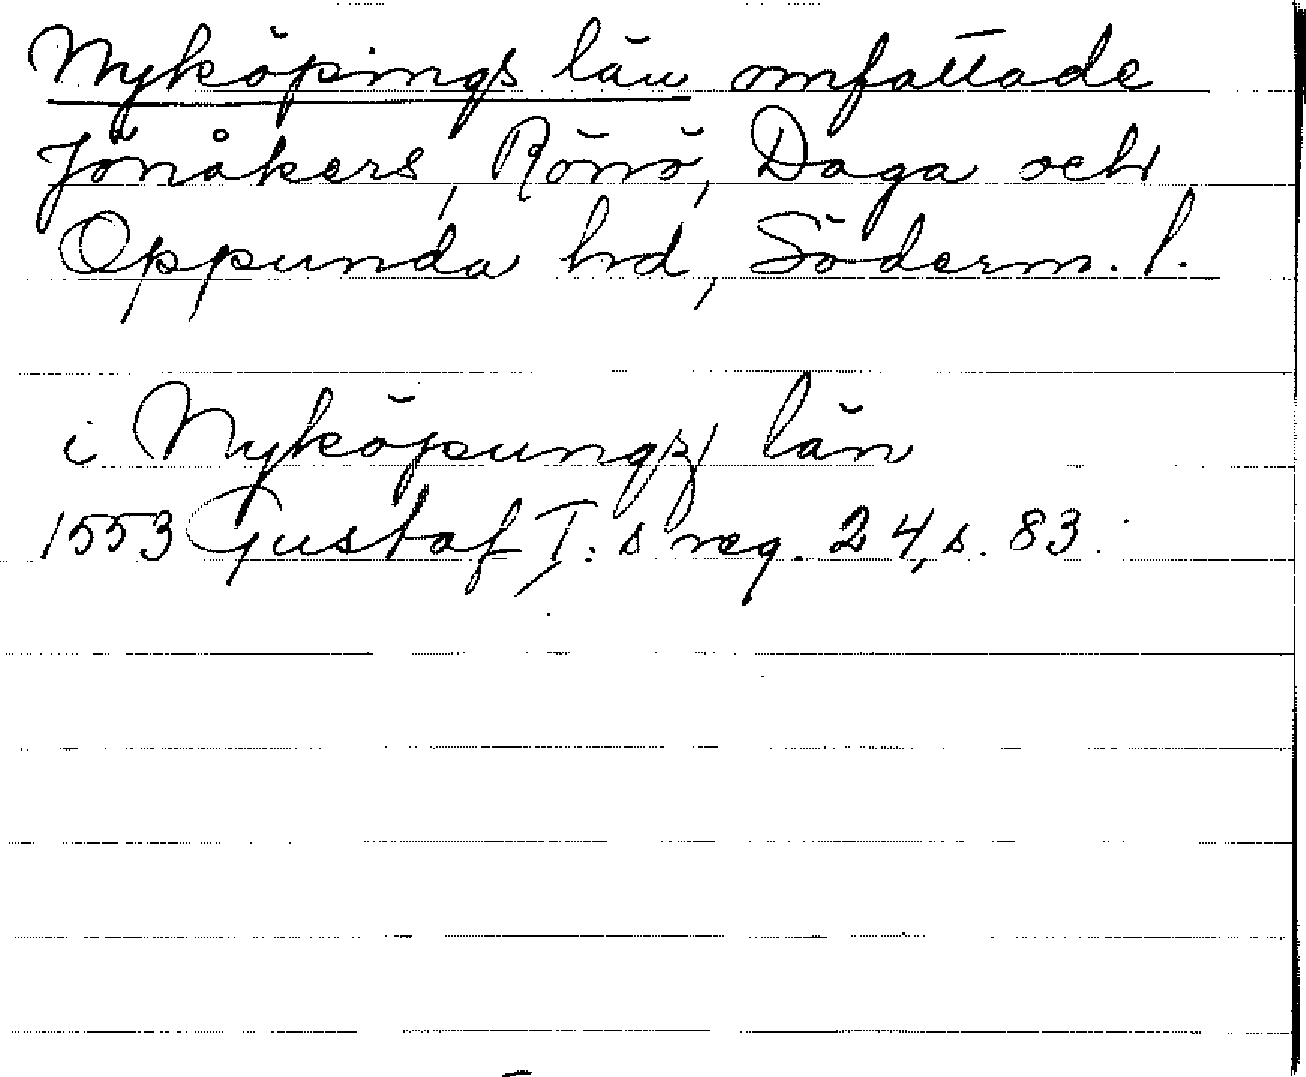 Nyköpings län omfattade
Jönåkers, Rönö, Daga och
Oppunda hd, Söderm. l.
i Nyköpungx län
1553 Gustaf I:s reg. 24, s. 83.